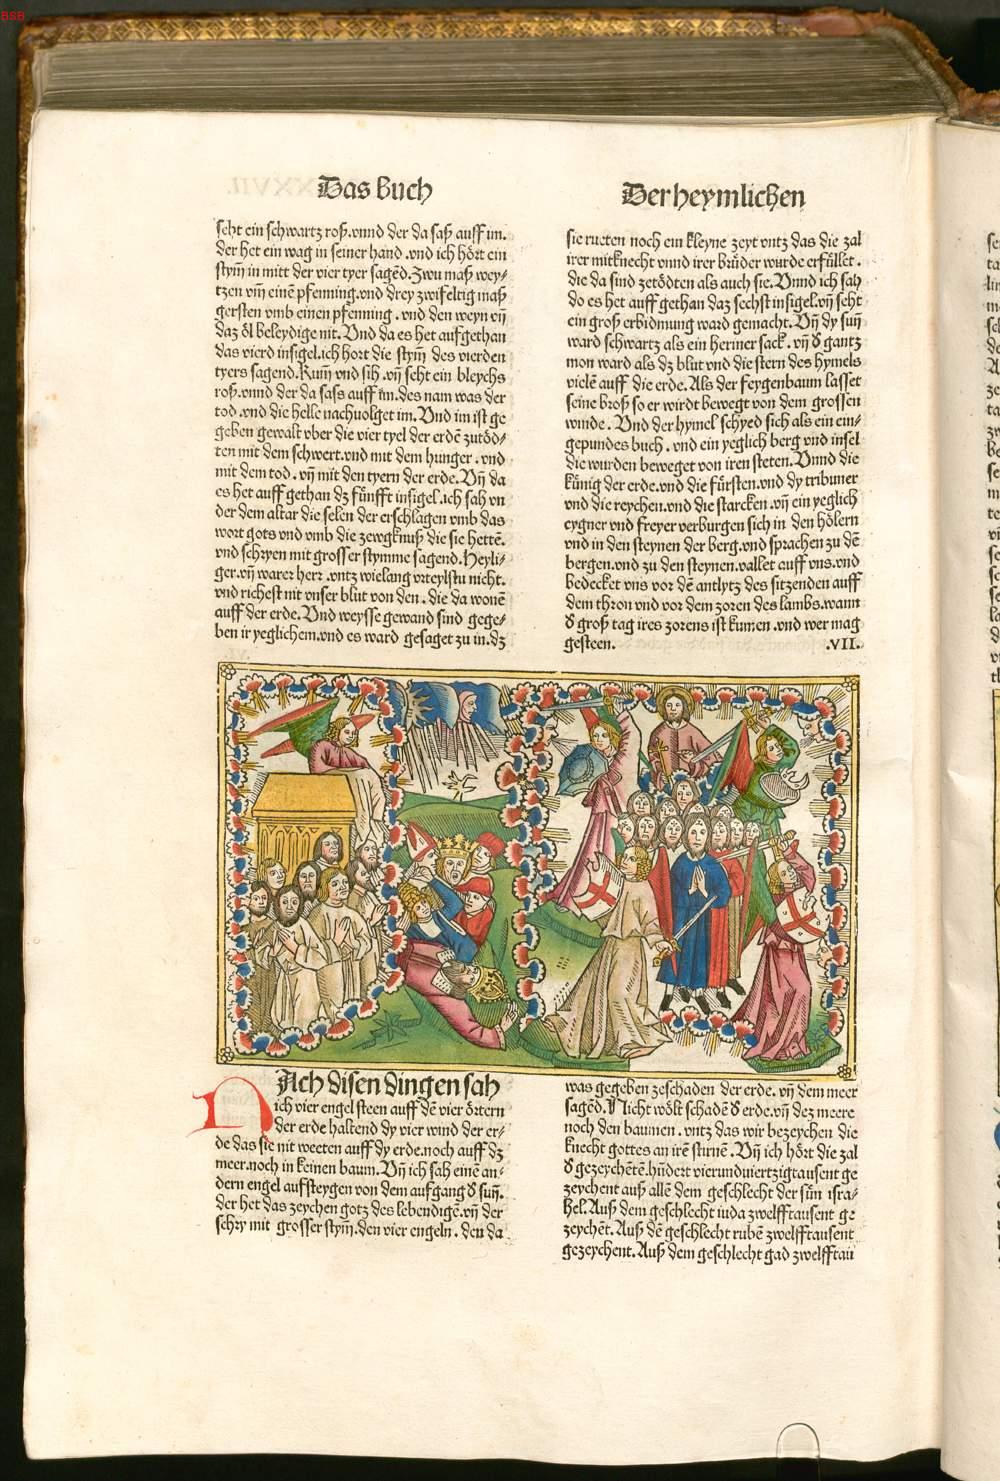 BSB
Das Buch
Der heymlichen
seht ein schwartz roß. vnnd der da saß auff im.
der het ein wag in seiner hand .vnd ich hört ein
stym̄ in mitt der vier tyer sagēd. Zwu maß wey⸗
tzen vm̄ einē pfenning. vnd drey zwifeltig maß
gersten vmb einen pfenning . vnd den weyn vn̄
daz öl beleydige nit. Vnd da es het aufgethan
das vierd insigel. ich hort die stym̄ des vierden
tyers sagend. Kum̄ vnd sih. vn̄ seht ein bleychs
roß. vnnd der da sass auff im. des nam was der
tod .vnd die helle nachuolget im. Vnd im ist ge
geben gewalt vber die vier tyel der erdē zutöd⸗
ten mit dem schwert. vnd mit dem hunger . vnd
mit dem tod . vn̄ mit den tyern der erde. Vn̄ da
es het auff gethan dz fünfft insigel. ich sah vn
der dem altar die selen der erschlagen vmb das
wort gots vnd vmb die zewgknuß die sie hettē.
vnd schryen mit grosser stymme sagend. Heyli⸗
ger. vn̄ warer herr .vntz wielang vrteylstu nicht.
vnd richest nit vnser blut von den . die da wonē
auff der erde. Vnd weysse gewand sind gege⸗
ben ir yeglichem. vnd es ward gesaget zu in. dz
sie rueten noch ein kleyne zeyt vntz das die zal
irer mitknecht vnnd irer brüder wurde erfüllet .
die da sind zetödten als auch sie. Vnnd ich sah
do es het auff gethan daz sechst insigel. vn̄ seht
ein groß erbidmung ward gemacht. Vn̄ dy sun̄
ward schwartz als ein heriner sack . vn̄ d gantz
mon ward als dz blut vnd die stern des hymels
vielē auff die erde. Als der feygenbaum lasset
seine broß so er wirdt bewegt von dem grossen
winde . Vnd der hymel schyed sich als ein ein⸗
gepundes buch . vnd ein yeglich berg vnd insel
die wurden beweget von iren steten. Vnnd die
künig der erde. vnd die fürsten. vnd dy tribuner
vnd die reychen. vnd die starcken .vn̄ ein yeglich
eygner vnd freyer verburgen sich in den hölern
vnd in den steynen der berg. vnd sprachen zu dē
bergen. vnd zu den steynen. vallet auff vns. vnd
bedecket vns vor dē antlytz des sitzenden auff
dem thron vnd vor dem zoren des lambs. wann
d groß tag ires zorens ist kumen .vnd wer mag
gesteen. .VII.
NAch disen dingen sah
ich vier engel steen auff dē vier örtern
der erde haltend dy vier wind der er⸗
de das sie nit weeten auff dy erde. noch auff dz
meer. noch in keinen baum. Vn̄ ich sah einē an⸗
dern engel aufsteygen von dem aufgang d sun̄.
der het das zeychen gotz des lebendigē. vn̄ der
schry mit grosser stym̄. den vier engeln . den da
was gegeben zeschaden der erde. vn̄ dem meer
sagēd. Nicht wölt schadē d erde. vn̄ dez meere
noch den baumen . vntz das wir bezeychen die
knecht gottes an irē stirnē . Vn̄ ich hört die zal
d gezeychētē. hūdert vierundviertzigtausent ge
zeychent auß allē dem geschlecht der sün isra⸗
hel. Auß dem geschlecht iuda zwelfftausent ge
zeychēt. Auß dē geschlecht rubē zwelfftausent
gezeychent. Auß dem geschlecht gad zwelfftau